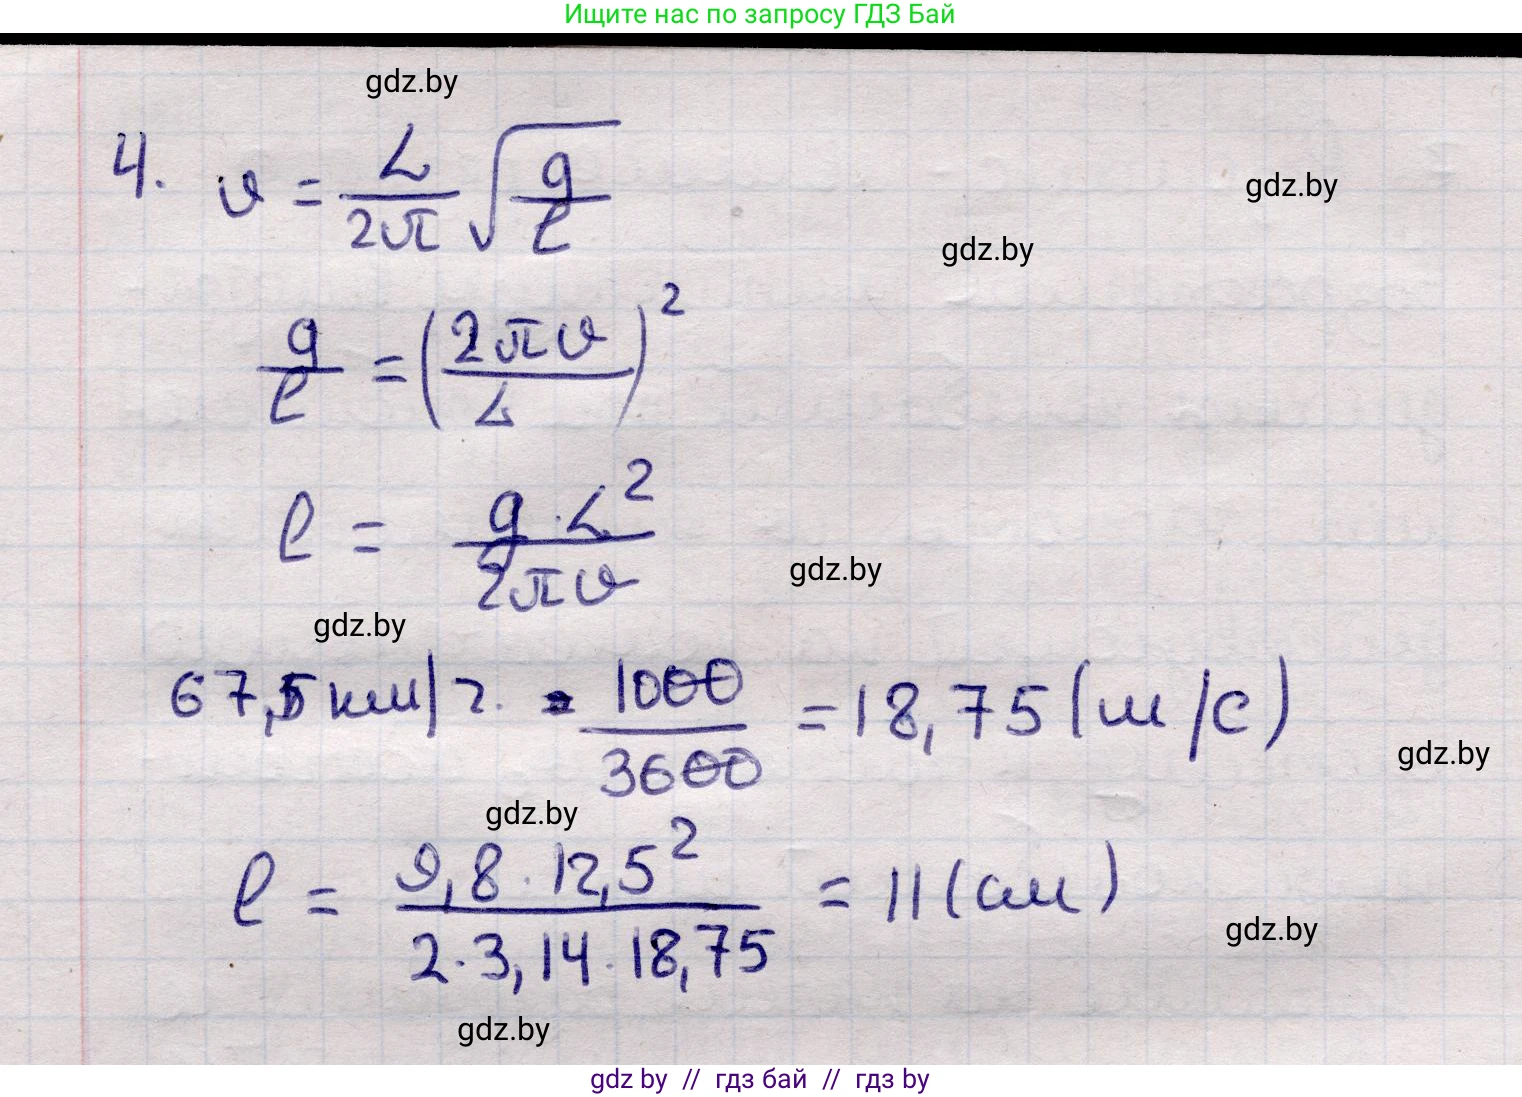 Ищите нас по запросу ГДЗ Бай
gdz.by
4. υ = L/2π √(g/ℓ)
gdz.by
gdz.by
g/ℓ = (2πυ/L)²
ℓ = g·L²/2πυ
gdz.by
gdz.by
67,5 км/г. = 1000/3600 = 18,75 (м/с)
gdz.by
gdz.by
ℓ = 9,8·12,5²/2·3,14·18,75 = 11 (см)
gdz.by
gdz.by
gdz by // гдз бай // гдз by